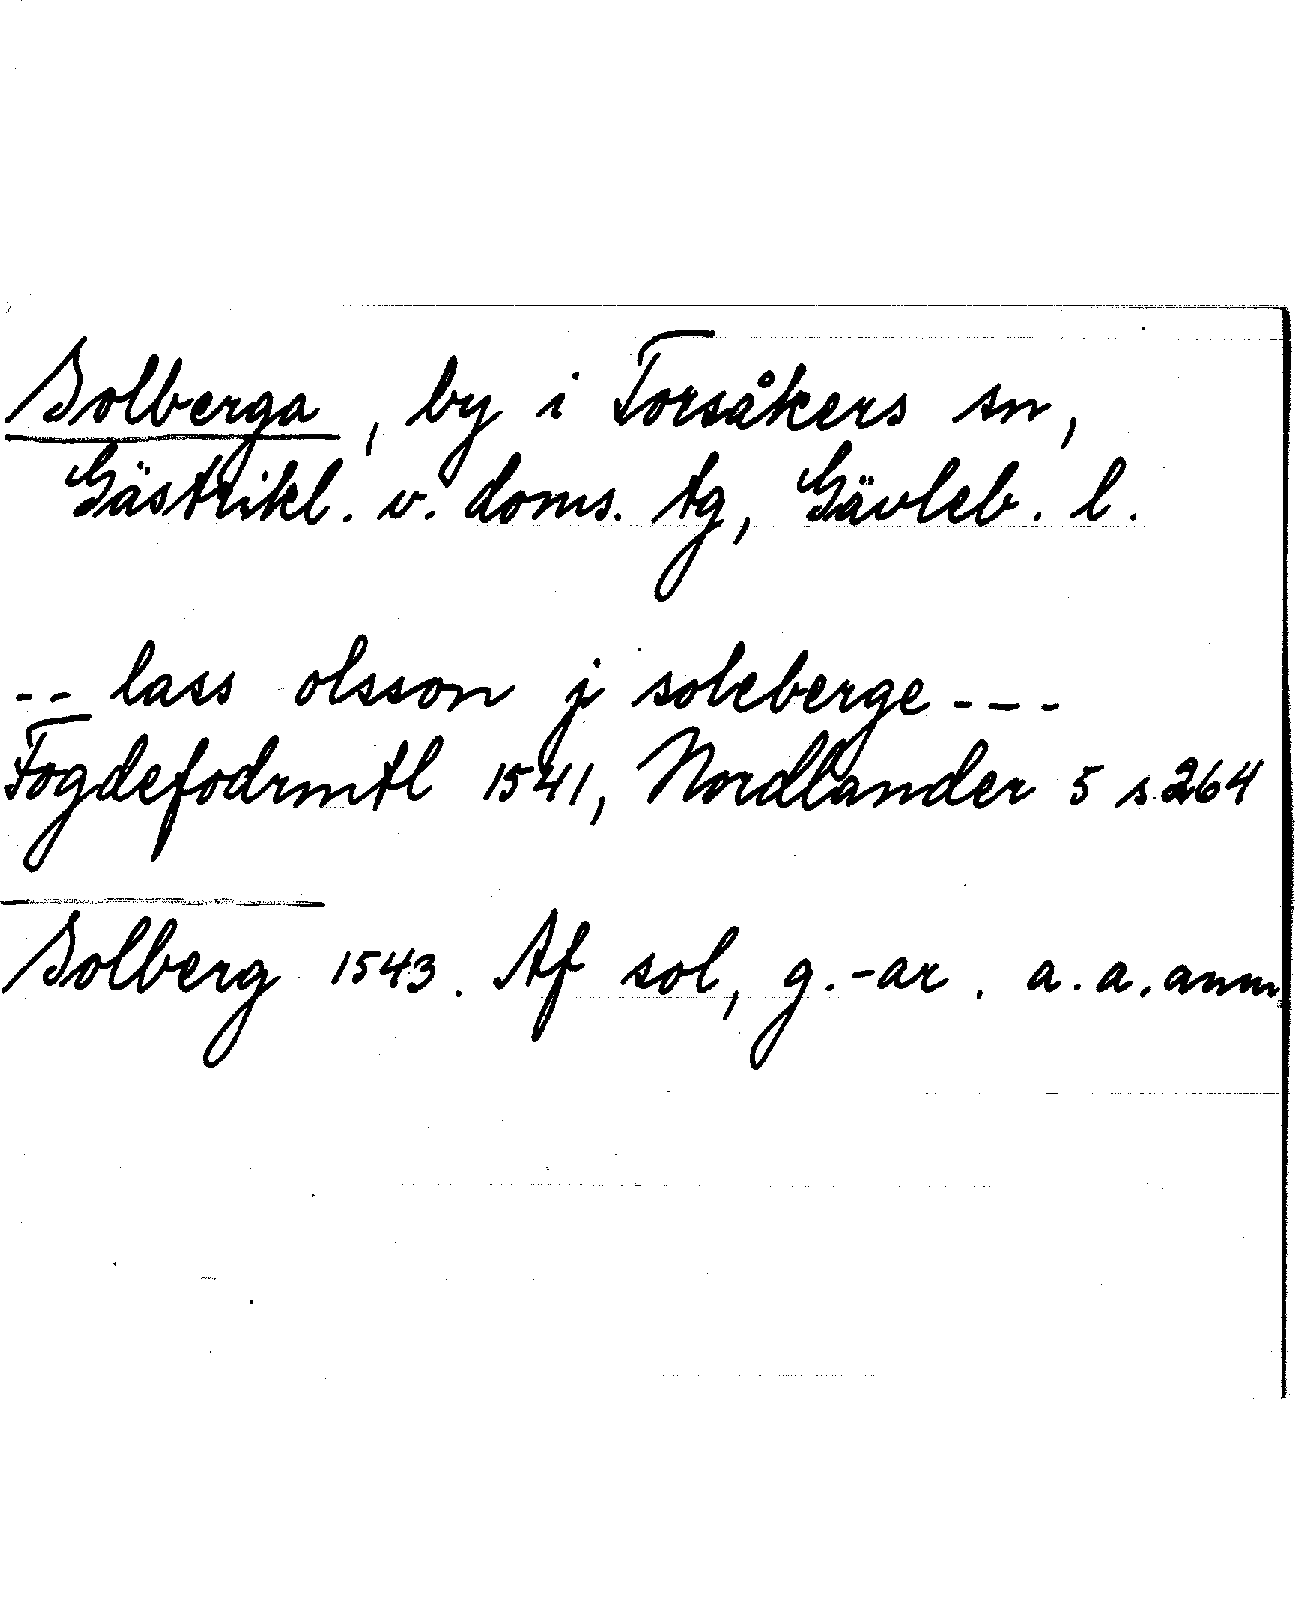 Solberga, by i Torsåkers sn,
Gästrikl. v. doms. tg, Gävleb. l.
-- lass olsson j soleberge ---
Fogdefodrmtl 1541, Nordlander 5 s. 264
Solberg 1543. Af sol, g. -ar. a. a. anm